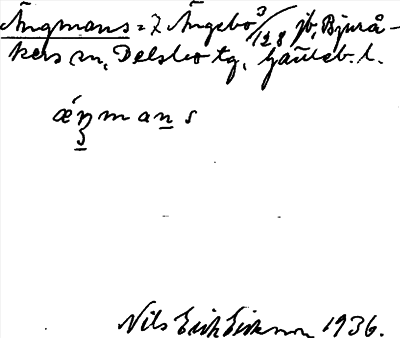 Ängmans = 7 Ängebo 3/128 jb, Bjurå-
kers sn, Delsbo tg, Gävleb. l.
æ´ŋmans
Nils Erik Eriksson 1936.